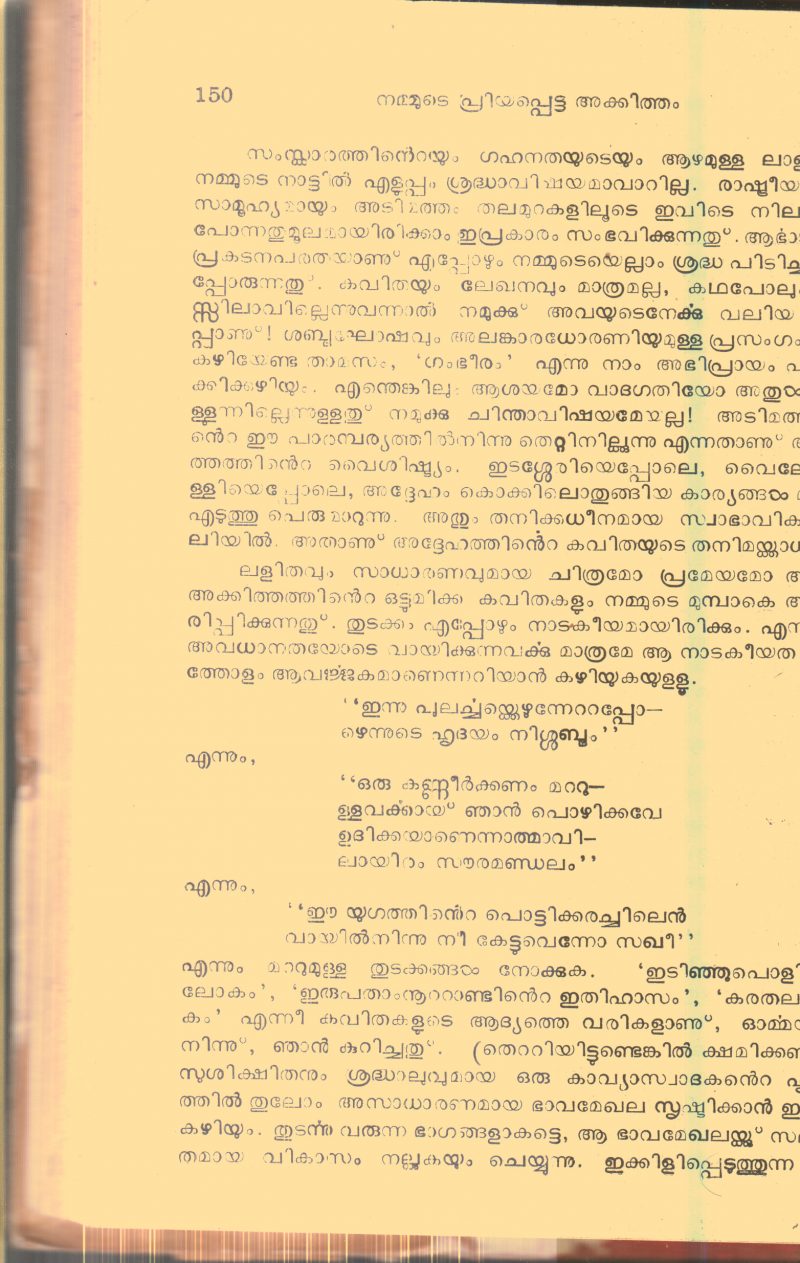 150
നമ്മുടെ പ്രിയപ്പെട്ട അക്കിത്തം
സംസ്കാരത്തിൻെറയും ഗഹനതയുടെയും ആഴമുള്ള
നമ്മുടെ നാട്ടിൽ എളുപ്പം ശ്രദ്ധാവിഷയമാവാറില്ല. രാഷ്ട്രീയ
സാമൂഹ്യമായും അടിമത്തം തലമുറകളിലൂടെ ഇവിടെ നില
പോന്നതുമൂലമായിരിക്കാം ഇപ്രകാരം സംഭവിക്കുന്നതു്.
പ്രകടനപരതയാണു് എപ്പോഴും നമ്മുടെയെല്ലാം ശ്രദ്ധ പിടിച്ചു
പ്പോരുന്നതു്. കവിതയും ലേഖനവും മാത്രമല്ല, കഥപോലും
സ്സിലാവില്ലെന്നുവന്നാൽ നമുക്കു് അവയുടെനേക്കു വലിയ
പ്പാണു്! ശബ്ദഘോഷവും അലങ്കാരധോരണിയുമുള്ള പ്രസംഗം
കഴിയേണ്ട താമസം, ‘ഗംഭീരം’ എന്നു നാം അഭിപ്രായം
ക്കിക്കഴിയും. എന്തെങ്കിലും ആശയമോ വാദഗതിയോ
ള്ളുന്നില്ലെന്നുള്ളതു് നമുക്കു ചിന്താവിഷയമേയല്ല! അടിമത്ത
ൻെറ ഈ പാരമ്പര്യത്തിൽനിന്നു തെറ്റിനില്ക്കുന്നു എന്നതാണു്
ത്തത്തിൻെറ വൈശിഷ്ട്യം. ഇടശ്ശേരിയെപ്പോലെ, വൈലോ
ള്ളിയെപ്പോലെ, അദ്ദേഹം കൊക്കിലൊതുങ്ങിയ കാര്യങ്ങൾ
എടുത്തു പെരുമാറുന്നു. അതും തനിക്കധീനമായ സ്വാഭാവിക
ലിയിൽ. അതാണു് അദ്ദേഹത്തിൻെറ കവിതയുടെ
ലളിതവും സാധാരണവുമായ ചിത്രമോ പ്രമേയമോ
അക്കിത്തത്തിൻെറ ഒട്ടുമിക്ക കവിതകളും നമ്മുടെ മുമ്പാകെ
രിപ്പിക്കുന്നതു്. തുടക്കം എപ്പോഴും നാടകീയമായിരിക്കും.
അവധാനതയോടെ വായിക്കുന്നവർക്കു മാത്രമേ ആ നാടകീയത
ത്തോളം ആവർജ്ജകമാണെന്നറിയാൻ കഴിയുകയുള്ളൂ.
‘‘ഇന്നു പുലർച്ചയ്ക്കെഴുന്നേററപ്പോ—
ഴെന്നുടെ ഹൃദയം നിശ്ശബ്ദം’’
എന്നും,
‘‘ഒരു കണ്ണീർക്കണം മററു—
ള്ളവർക്കായ് ഞാൻ പൊഴിക്കവേ
ഉദിക്കയാണെന്നാത്മാവി—
ലായിരം സൗരമണ്ഡലം’’
എന്നും,
‘‘ഈ യുഗത്തിൻെറ പൊട്ടിക്കരച്ചിലെൻ
വായിൽനിന്നു നീ കേട്ടുവെന്നോ സഖീ’’
എന്നും മററുമുള്ള തുടക്കങ്ങൾ നോക്കുക. ‘ഇടിഞ്ഞുപൊളി
ലോകം’, ‘ഇരുപതാംനൂററാണ്ടിൻെറ ഇതിഹാസം’, ‘കരതല
കം’ എന്നീ കവിതകളുടെ ആദ്യത്തെ വരികളാണു്,
നിന്നു്, ഞാൻ കുറിച്ചതു്. (തെററിയിട്ടുണ്ടെങ്കിൽ
സുശിക്ഷിതനും ശ്രദ്ധാലുവുമായ ഒരു കാവ്യാസ്വാദകൻെറ
ത്തിൽ തുലോം അസാധാരണമായ ഭാവമേഖല സൃഷ്ടിക്കാൻ
കഴിയും. തുടർന്നു വരുന്ന ഭാഗങ്ങളാകട്ടെ, ആ ഭാവമേഖലയ്ക്കു്
തമായ വികാസം നല്കുകയും ചെയ്യുന്നു. ഇക്കിളിപ്പെടുത്തുന്ന